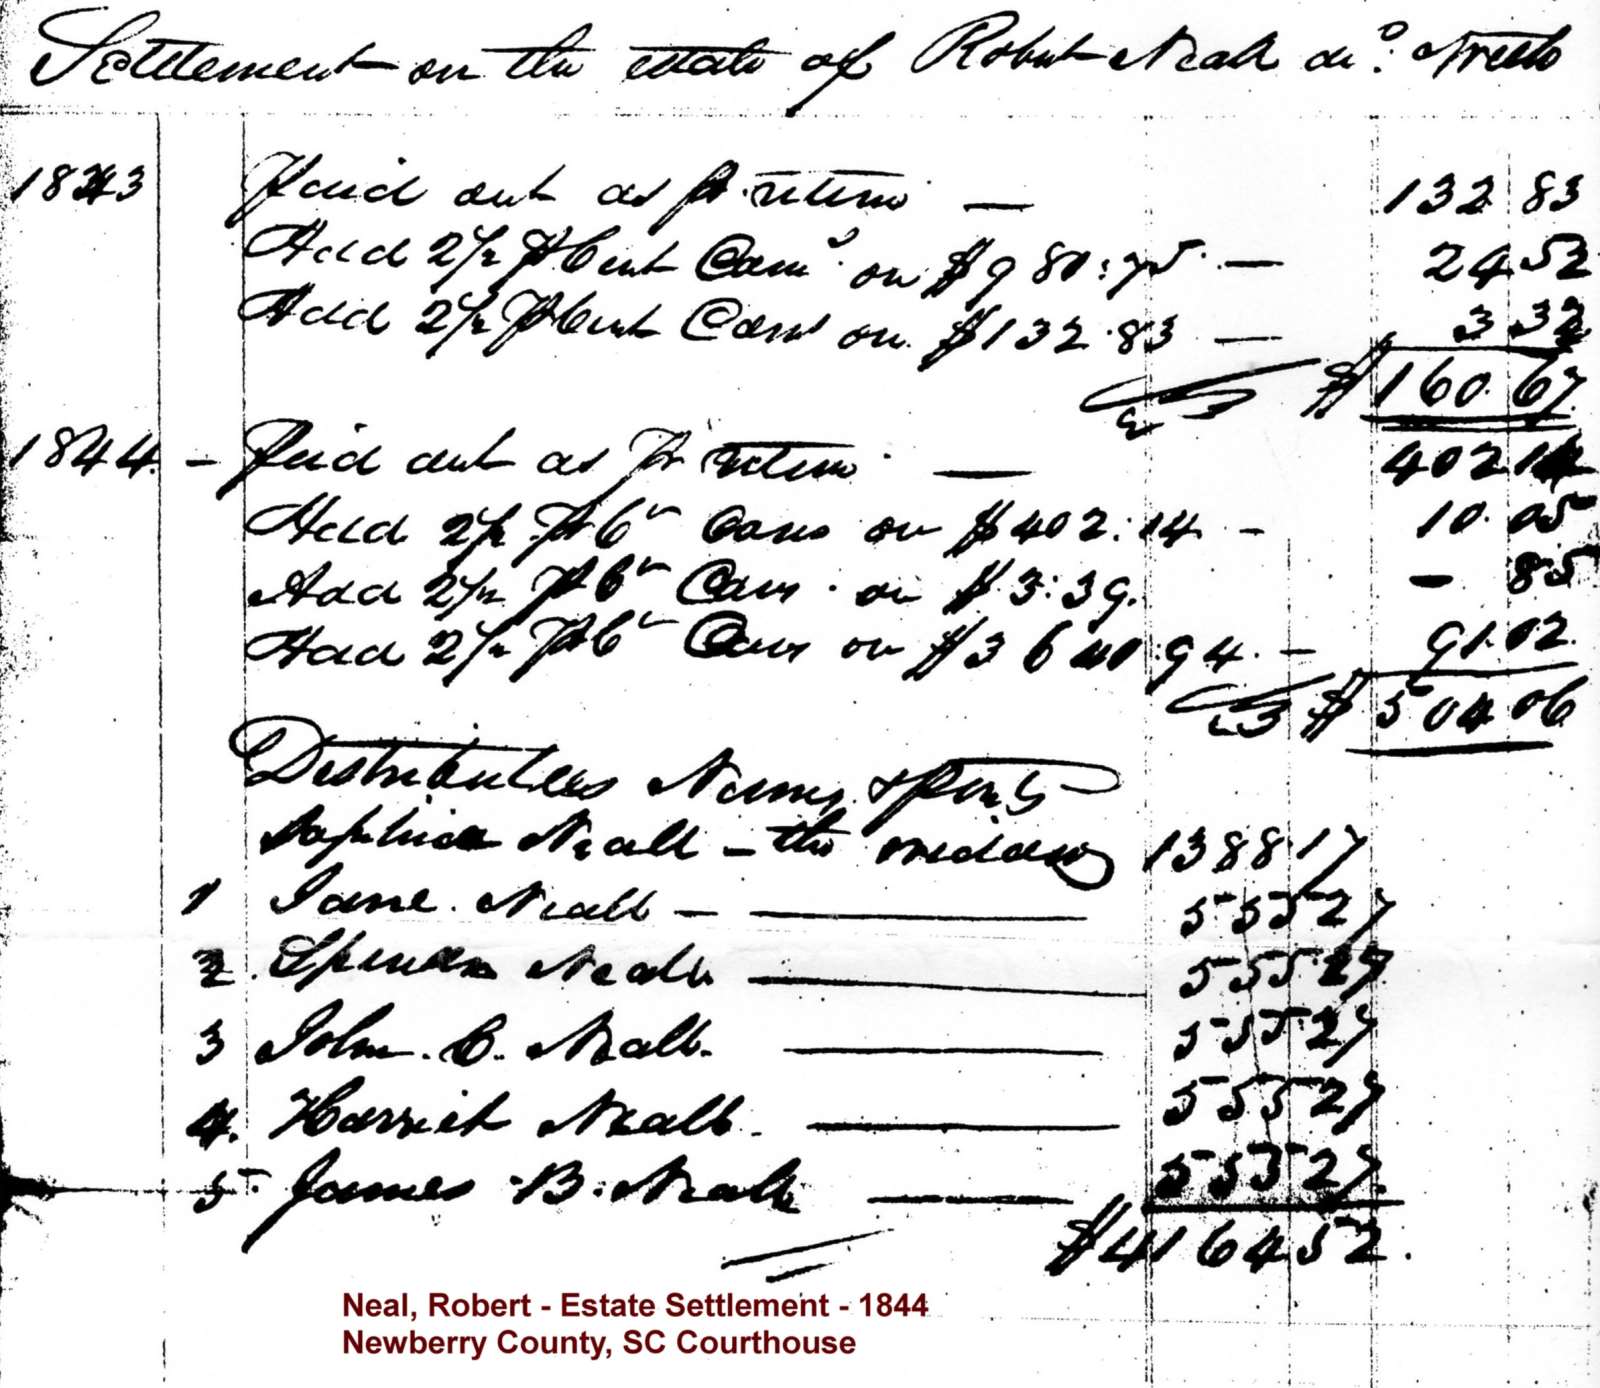 Settlement on the estate of Robert Neall decd.
1843 Paid out as pr. return — 132 83
Add 2½ pr Cent Coms. on $980:75 — 24.52
Add 2½ pr Cent Coms on $132.83 — 3 32
$160.67
1844. – Paid out as pr return — 402 14
Add 2½ pr Ct Coms on $402:14 – 10.05
Add 2½ pr Ct Coms. on $3:39. – 85
Add 2½ pr Ct Coms on $3640.94. – 91.02
$504 06
Distributees Names & parts
Sophia Neall – the widow 1388 17
1 Jane. Neall — 555 27
2. Spencer Neall — 555 27
3 John. C. Neall. — 555 27
4. Harriet Neall. — 555 27
5. James B. Neall — 555 27.
$4164 52.
Neal, Robert - Estate Settlement - 1844
Newberry County, SC Courthouse